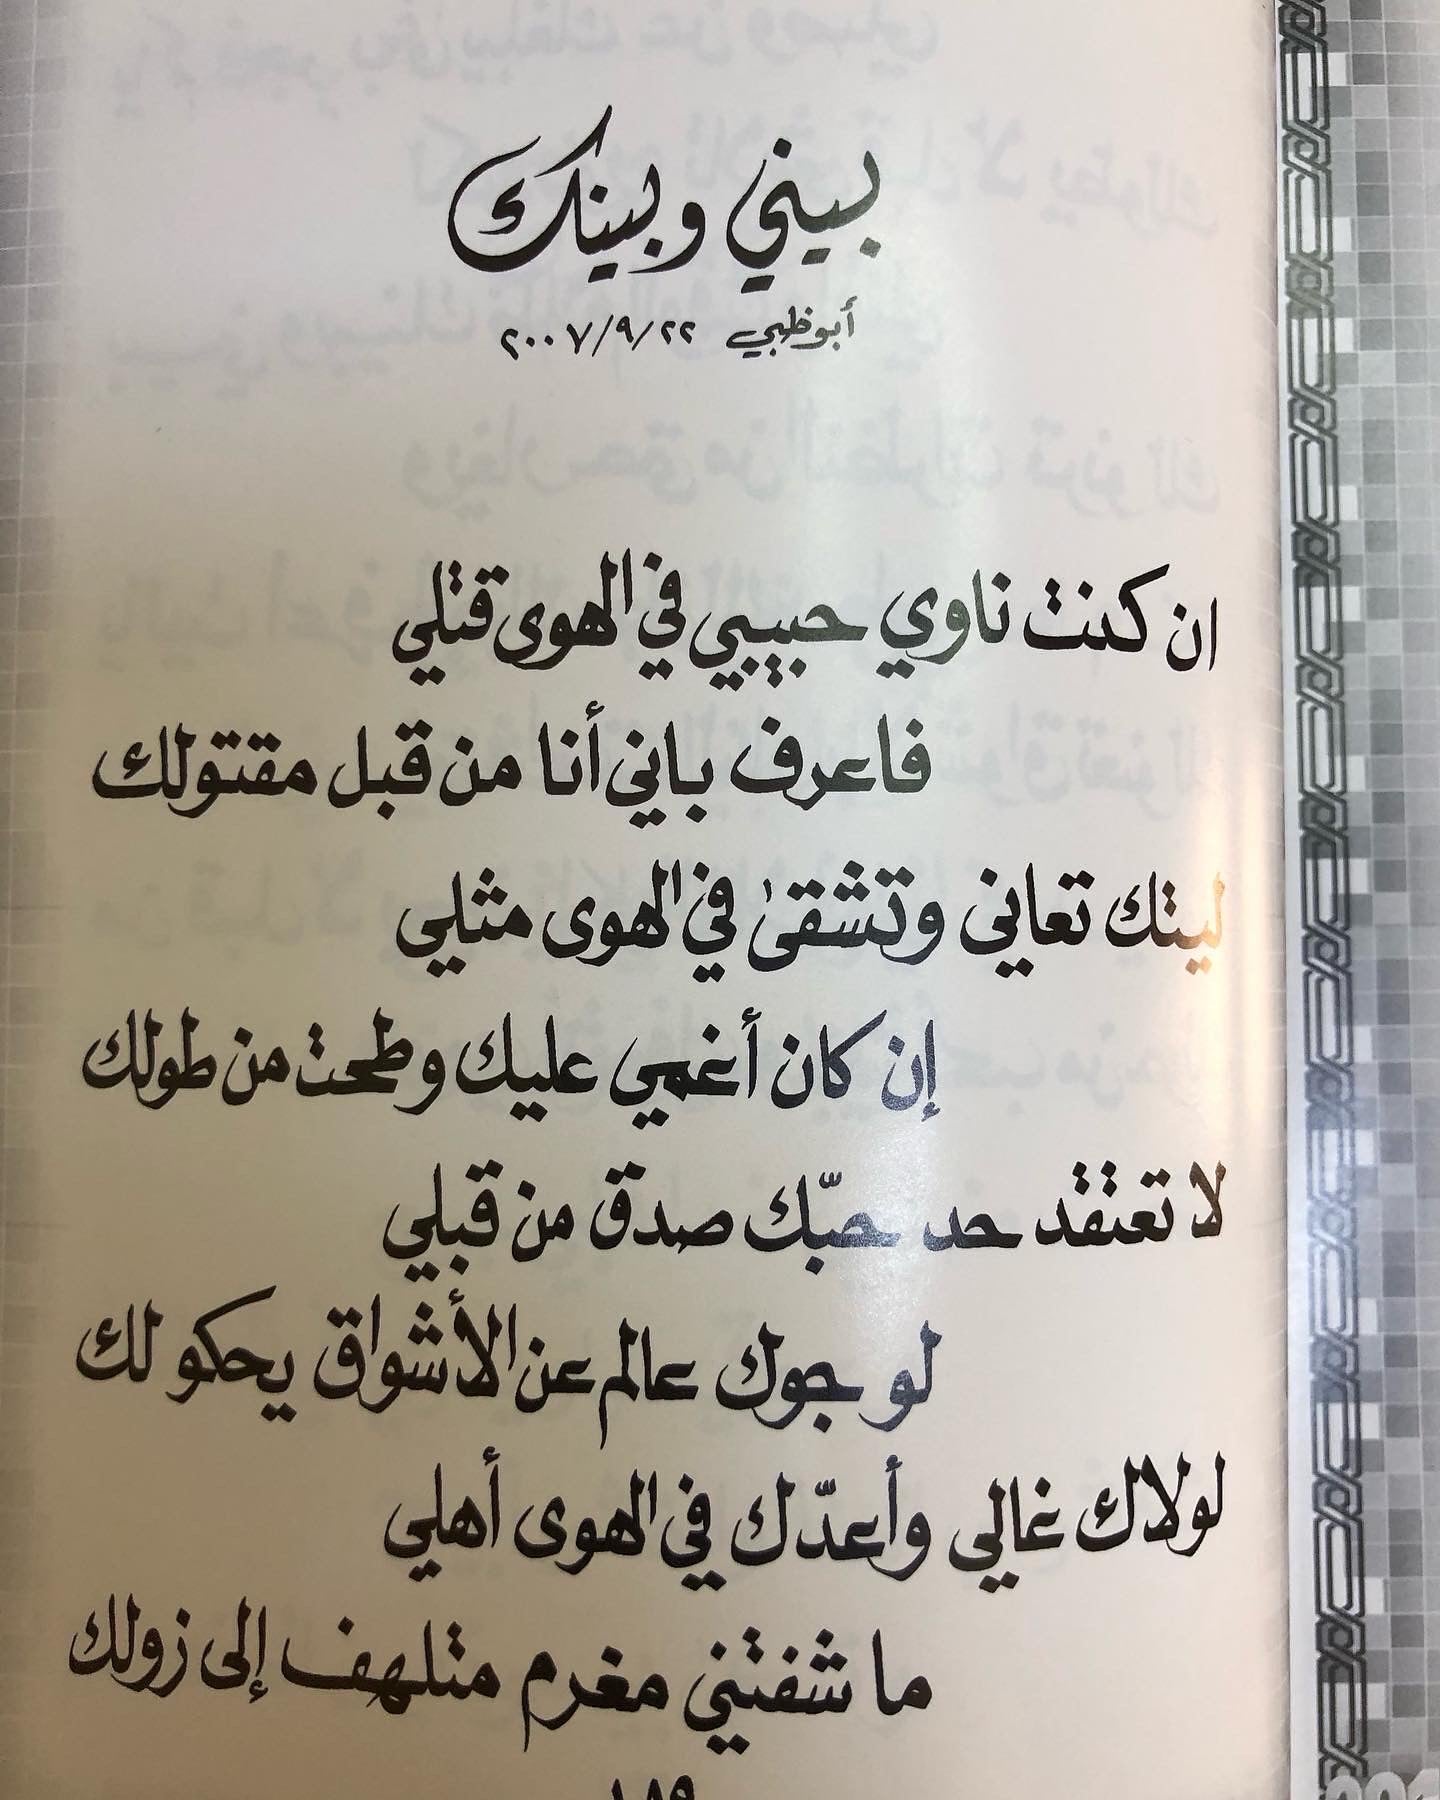 بيني وبينك
أبوظبي ٢٠٠٧/٩/٢٢
ان كنت ناوي حبيبي في الهوى قتلي
فاعرف باني أنا من قبل مقتولك
ليتك تعاني وتشقى في الهوى مثلي
إن كان أغمي عليك وطحت من طولك
لا تعتقد حد حبّك صدق من قبلي
لو جوك عالم عن الأشواق يحكو لك
لولاك غالي وأعدّك في الهوى أهلي
ما شفتني مغرم متلهف إلى زولك
١٨٩